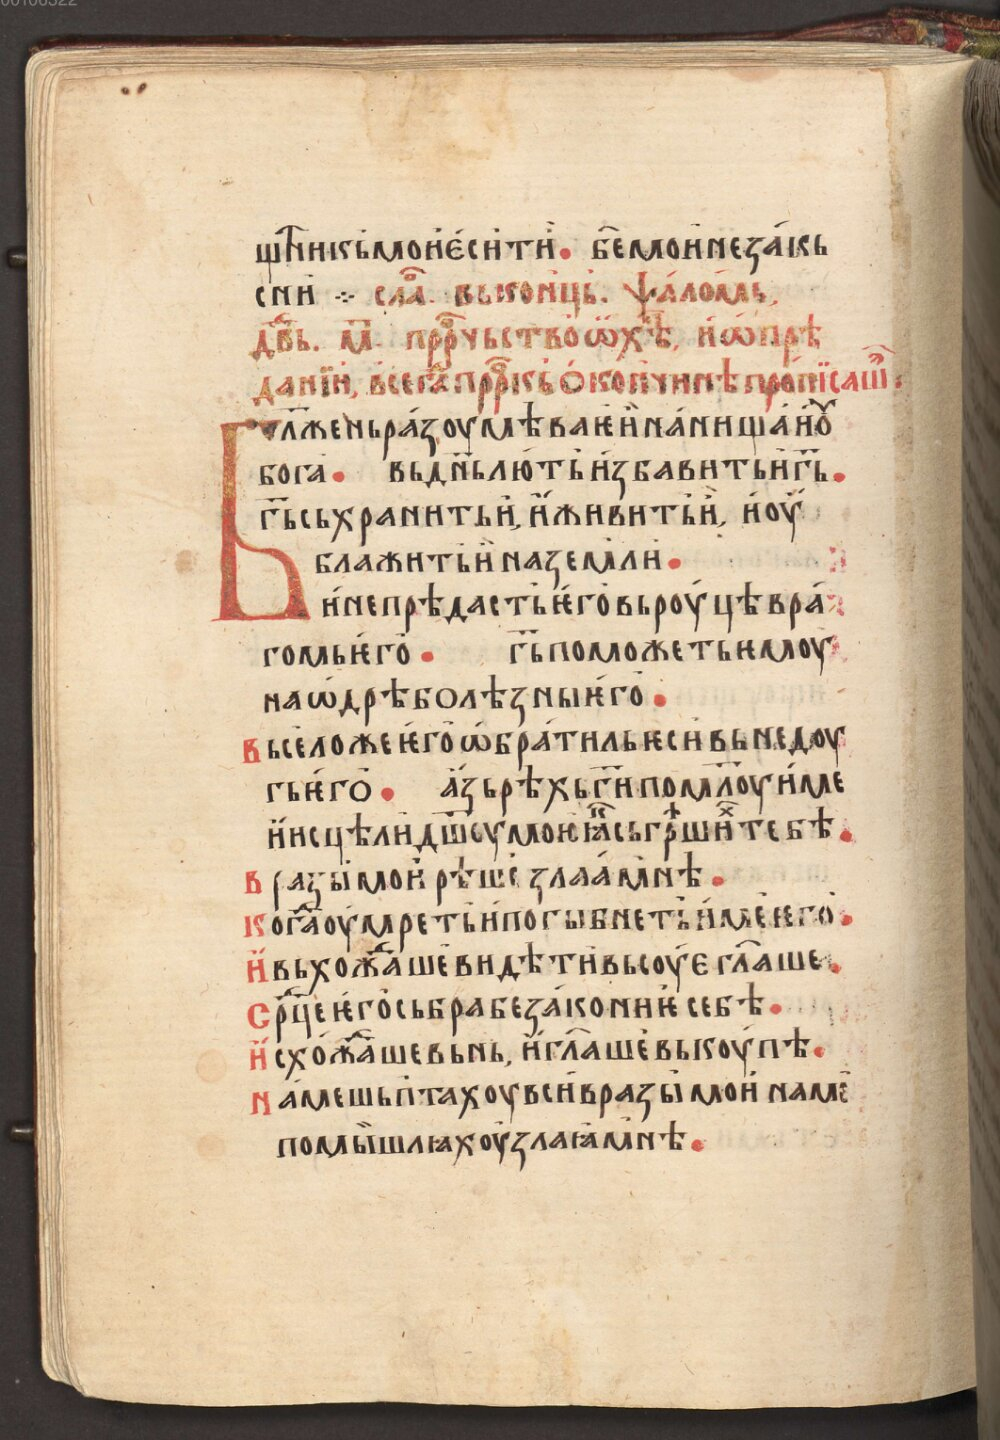 щ҃никь мои ѥси ти. б҃е мои не закь
сни ⁘ сла҃. вь коньць. ѱаломь
дв҃ь. м҃. пр҃рчьство ѿ х҃ѣ, и ѡ прѣ
дании, всегда прр҃кь ѡкончинѣ прописаѿ.
Бл҃жень разоумѣваѥи на нища и оу
бога. вь дн҃ь лють избавить и г҃ь.
г҃ь сьхранить и, и живить и, и оу
блажить и наземли.
и не прѣдасть ѥго вь роуцѣ вра
гомь ѥго. г҃ь поможеть ѥмоу
на ѡдрѣ болѣзны ѥго.
вьсе ложе ѥго ѡбратиль ѥси вь недоу
гь ѥго. азь рѣхь г҃и помл҃оуи ме
и исцѣли дш҃оу мою ꙗко сьгрѣших тебѣ.
врази мои рѣше злаа мнѣ.
когда оумреть и погыбнеть име ѥго.
и вьхождаше видѣти вьсоуѥ гл҃аше.
ср҃це ѥго сьбра безаконние себѣ.
исхождаше вьнь, и гл҃аше вькоупѣ.
на ме шьптахоу вси врази мои на ме
помышлꙗхоу злаꙗ мнѣ.